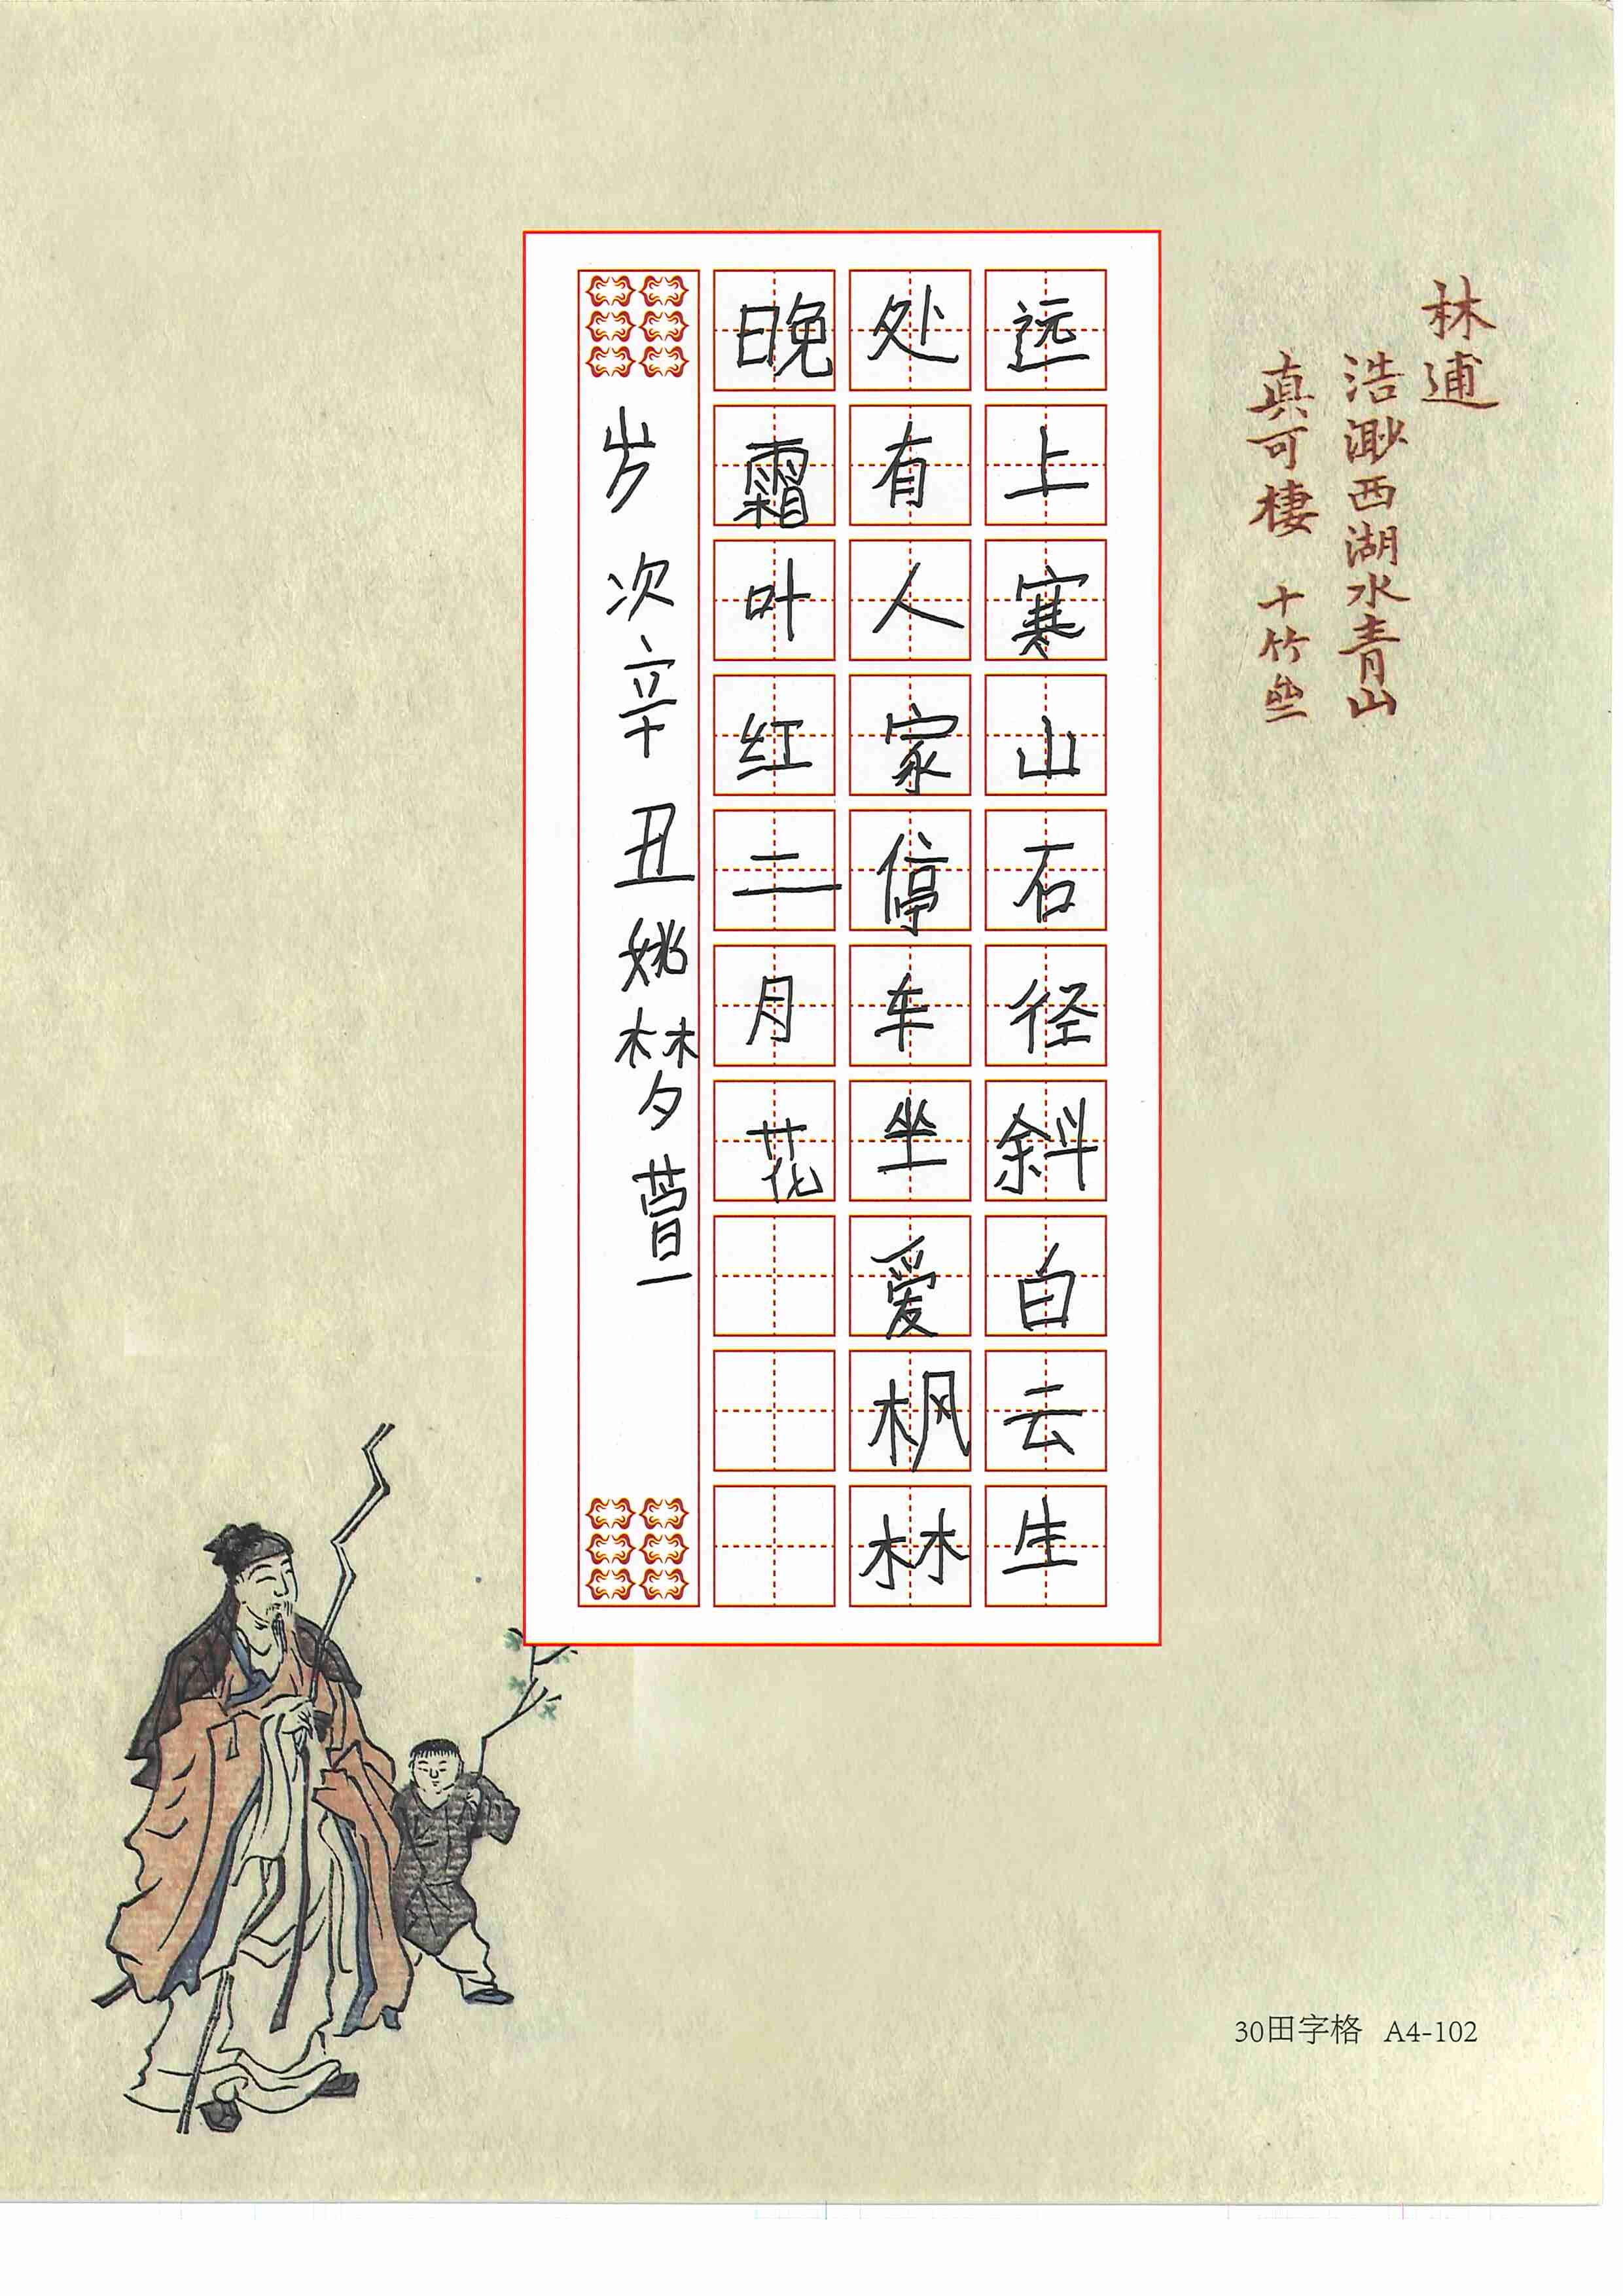 林逋
浩渺西湖水青山
真可棲 十竹垒
远上寒山石径斜白云生
处有人家停车坐爱枫林
晚霜叶红二月花
岁次辛丑姚梦
30田字格 A4-102